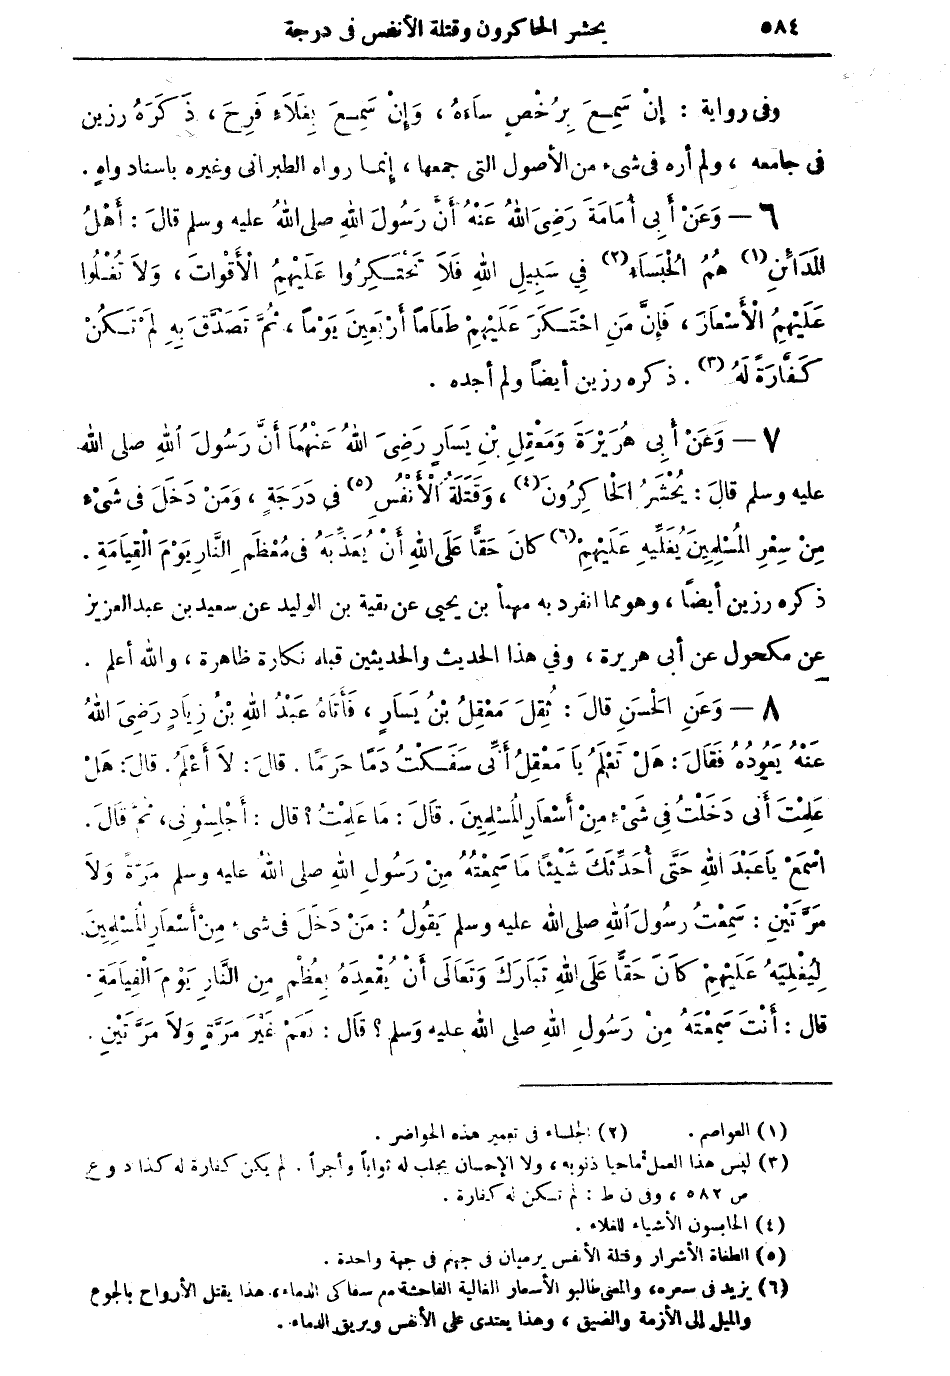 ٥٨٤ يحشر الحاكرون وقتلة الأنفس فى درجة
وفى رواية : إنْ سَمِعَ بِرُخْصٍ سَاءَهُ ، وَإِنْ سَمِعَ بِغَلَاءٍ فَرِحَ ، ذَكَرَهُ رزين
فى جامعه ، ولم أره فى شىء من الأصول التى جمعها ، إنما رواه الطبرانى وغيره باسناد واهٍ .
٦ — وَعَنْ أَبِى أُمَامَةَ رَضِىَ اللهُ عَنْهُ أَنَّ رَسُولَ اللهِ صلى اللهُ عليه وسلم قالَ : أَهْلُ
المَدَائِنِ (١) هُمُ الحُبَسَاءِ (٢) فِي سَبِيلِ اللهِ فَلَا تَحْتَكِرُوا عَلَيْهِمُ الْأَقْوَاتَ ، وَلَا تُغْلُوا
عَلَيْهِمُ الْأَسْعَارَ ، فَإِنَّ مَنِ احْتَكَرَ عَلَيْهِمْ طَعَاماً أَرْبَعِينَ يَوْماً ، ثُمَّ تَصَدَّقَ بِهِ لَمْ تَكُنْ
كَفَّارَةً لَهُ (٣) . ذكره رزين أيضاً ولم أجده .
٧ — وَعَنْ أَبِى هُرَيْرَةَ وَمَعْقِلِ بْنِ يَسَارٍ رَضِىَ اللهُ عَنْهُمَا أَنَّ رَسُولَ اللهِ صلى الله
عليه وسلم قالَ : يُحْشَرُ الحَاكِرُونَ (٤) ، وَقَتَلَةُ الْأَنْفُسِ (٥) فى دَرَجَةٍ ، وَمَنْ دَخَلَ فى شَىْءٍ
مِنْ سِعْرِ المُسْلِمِينَ يُغَلِّيهِ عَلَيْهِمْ (٦) كانَ حَقًّا عَلَى اللهِ أَنْ يُعَذِّبَهُ فى مُعْظَمِ النَّارِ يَوْمَ الْقِيَامَةِ .
ذكره رزين أيضًا ، وهو مما انفرد به مهنأ بن يحيى عن بقية بن الوليد عن سعيد بن عبدالعزيز
عن مكحول عن أبى هريرة ، وفي هذا الحديث والحديثين قبله نكارة ظاهرة ، والله أعلم .
٨ — وَعَنِ الحَسَنِ قالَ : ثَقِلَ مَعْقِلُ بْنُ يَسَارٍ ، فَأَتَاهُ عَبْدُ اللهِ بْنُ زِيَادٍ رَضِىَ اللهُ
عَنْهُ يَعُودُهُ فَقَالَ : هَلْ تَعْلَمُ يا مَعْقِلُ أَنِّى سَفَكْتُ دَمًا حَرَامًا . قالَ : لا أَعْلَمُ . قالَ : هَلْ
عَلِمْتَ أَنِّى دَخَلْتُ فِي شَىْءٍ مِنْ أَسْعَارِ المُسْلِمِينَ . قَالَ : مَا عَلِمْتُ ؟ قال : أَجْلِسُونِى ، ثُمَّ قَالَ .
اسْمَعْ يَاعَبْدَ اللهِ حَتَّى أُحَدِّثَكَ شَيْئًا مَا سَمِعْتُهُ مِنْ رَسُولِ اللهِ صلى اللهُ عليه وسلم مَرَّةً وَلَا
مَرَّتَيْنِ : سَمِعْتُ رسُولَ اللهِ صلى الله عليه وسلم يَقُولُ : مَنْ دَخَلَ فى شىءٍ مِنْ أَسْعَارِ المُسْلِمِينَ
لِيُغْلِيَهُ عَلَيْهِمْ كَانَ حَقًّا عَلَى اللهِ تَبَارَكَ وَتَعَالَى أَنْ يُقْعِدَهُ بِعُظْمٍ مِنَ النَّارِ يَوْمَ الْقِيَامَةِ .
قال : أَنْتَ سَمِعْتَهُ مِنْ رَسُولِ اللهِ صلى الله عليه وَسلم ؟ قال : نَعَمْ غَيْرَ مَرَّةٍ وَلَا مَرَّتَيْنِ .
(١) العواصم . (٢) الجلساء فى تعمير هذه الحواضر .
(٣) ليس هذا العمل ماحيا ذنوبه ، ولا الإحسان يجلب له ثواباً وأجراً . لم يكن كفارة له كذا د و ع
ص ٥٨٢ ، وفى ن ط : لم تكن له كفارة .
(٤) الحابسون الأشياء للغلاء .
(٥) الطغاة الأشرار وقتلة الأنفس يرميان فى جهنم فى جهة واحدة .
(٦) يزيد فى سعره، والمعنى طالبو الأسعار الغالية الفاحشة مع سفاكى الدماء، هذا يقتل الأرواح بالجوع
والميل إلى الأزمة والضيق ، وهذا يعتدى على الأنفس ويريق الدماء .